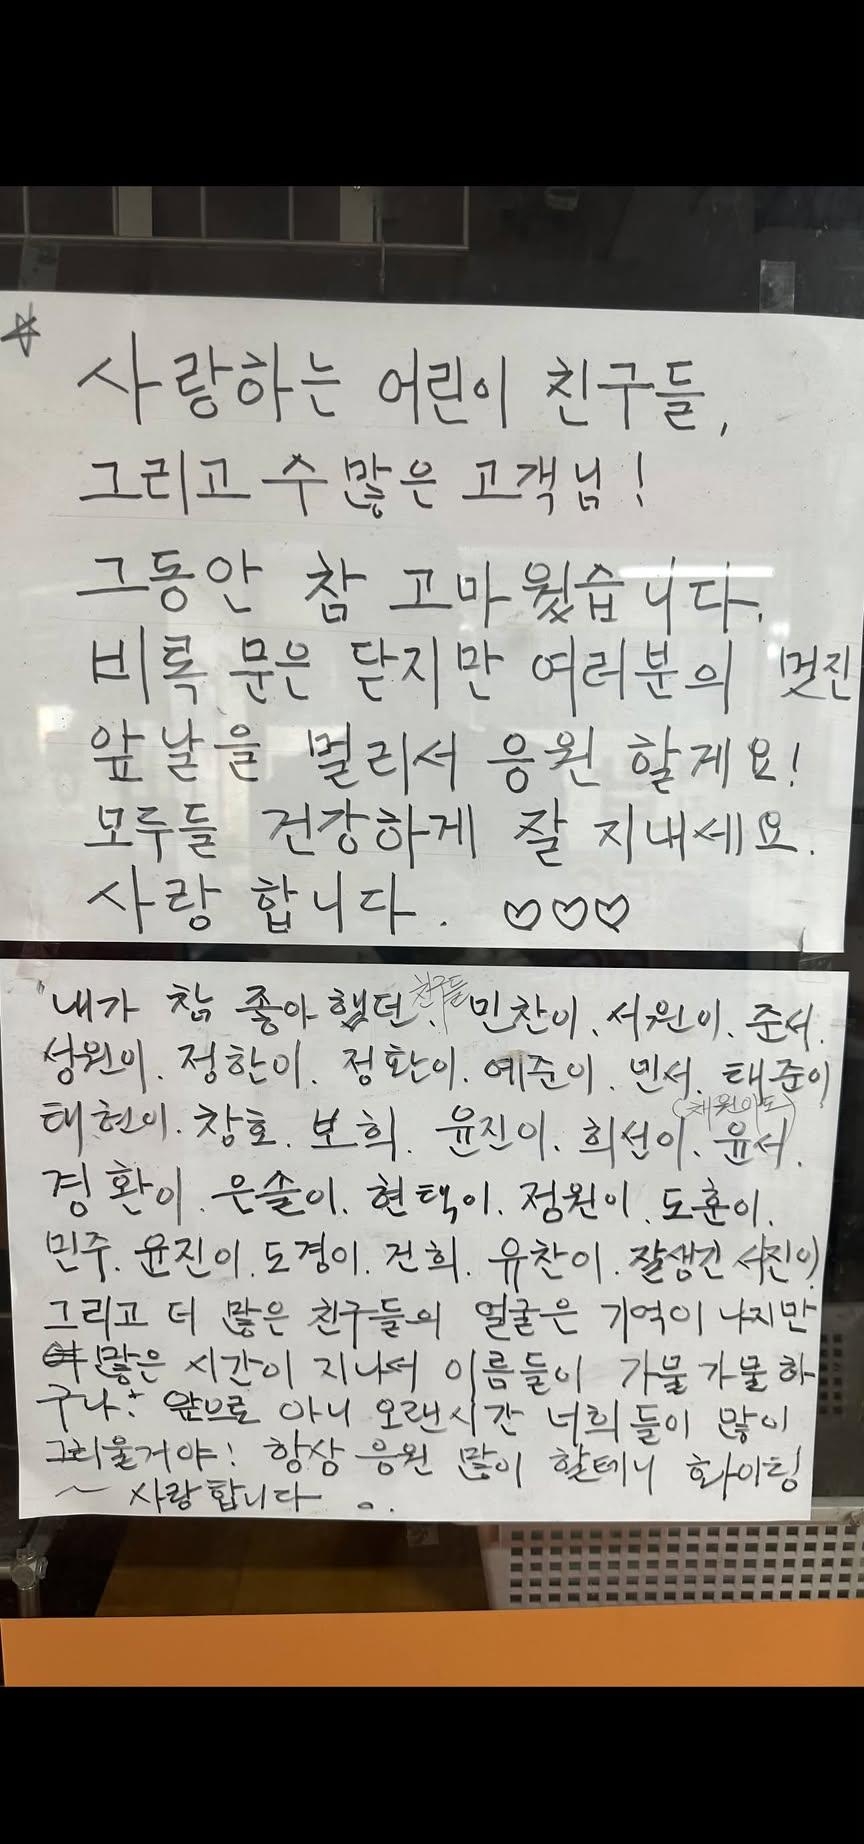 사랑하는 어린이 친구들,
그리고 수많은 고객님!
그동안 참 고마웠습니다.
비록 문은 닫지만 여러분의 멋진
앞날을 멀리서 응원 할게요!
모두들 건강하게 잘 지내세요.
사랑합니다. ♡♡♡
"내가 참 좋아했던 친구들 민찬이. 서원이. 준서.
성원이. 정한이. 정환이. 예준이. 민서. 태준이
태현이. 창호. 보희. 윤진이. 희선이. (채원이도) 윤서.
경환이. 은솔이. 현택이. 정원이. 도훈이.
민주. 윤진이. 도경이. 건희. 유찬이. 잘생긴 서진이.
그리고 더 많은 친구들의 얼굴은 기억이 나지만
많은 시간이 지나서 이름들이 가물가물 하
구나! 앞으로 아니 오랜시간 너희들이 많이
그리울거야! 항상 응원 많이 할테니 화이팅
~ 사랑합니다